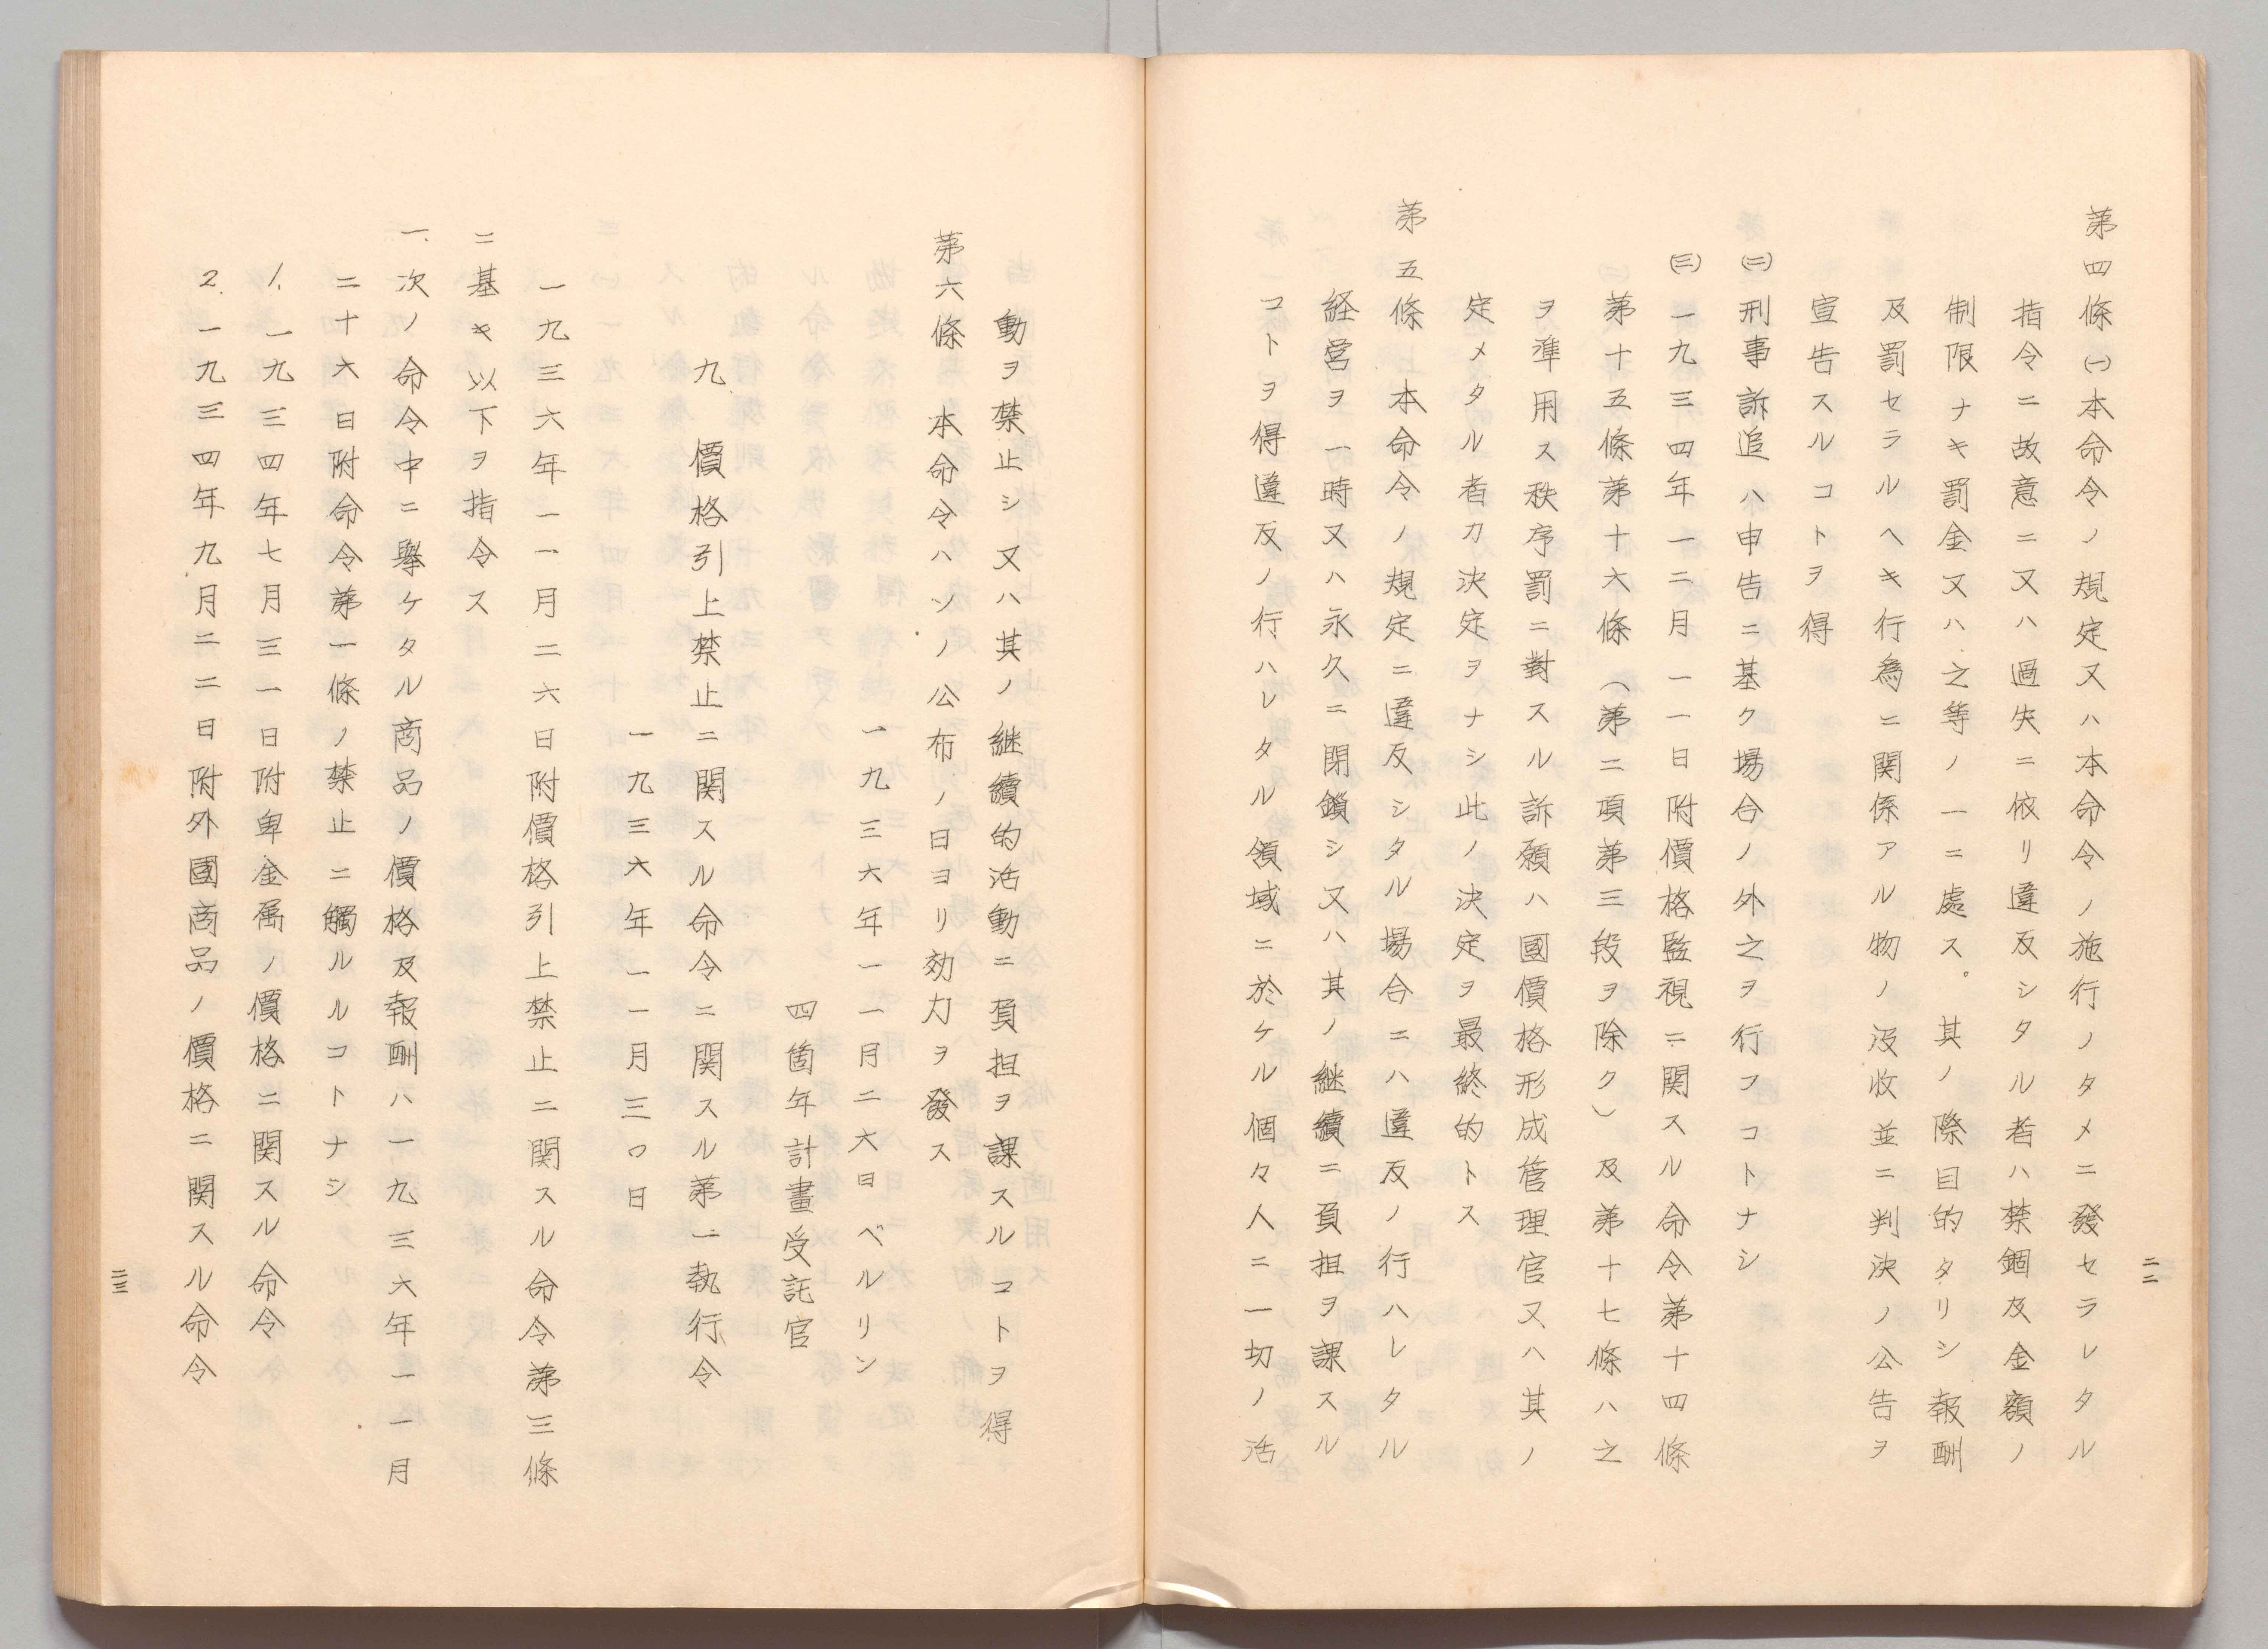 第四條(一)本命令ノ規定又ハ本命令ノ施行ノタメニ發セラレタル
指令ニ故意ニ又ハ過失ニ依リ違反シタル者ハ禁錮及金額ノ
制限ナキ罰金又ハ之等ノ一ニ處ス。其ノ際目的タリシ報酬
及罰セラルヘキ行為ニ関係アル物ノ没收並ニ判決ノ公告ヲ
宣告スルコトヲ得
(二)刑事訴追ハ申告ニ基ク場合ノ外之ヲ行フコトナシ
(三)一九三四年一二月一一日附價格監視ニ関スル命令第十四條
第十五條第十六條(第二項第三段ヲ除ク)及第十七條ハ之
ヲ準用ス秩序罰ニ對スル訴願ハ國價格形成管理官又ハ其ノ
定メタル者カ決定ヲナシ此ノ決定ヲ最終的トス
第五條 本命令ノ規定ニ違反シタル場合ニハ違反ノ行ハレタル
経営ヲ一時又ハ永久ニ閉鎖シ又ハ其ノ継續ニ負担ヲ課スル
コトヲ得違反ノ行ハレタル領域ニ於ケル個々人ニ一切ノ活
二二
動ヲ禁止シ又ハ其ノ継續的活動ニ負担ヲ課スルコトヲ得
第六條 本命令ハソノ公布ノ日ヨリ効力ヲ發ス
一九三六年一一月二六日ベルリン
四箇年計畫受託官
九、價格引上禁止ニ関スル命令ニ関スル第一執行令
一九三六年一一月三〇日
一九三六年一一月二六日附價格引上禁止ニ関スル命令第三條
ニ基キ以下ヲ指令ス
一、次ノ命令中ニ擧ケタル商品ノ價格及報酬ハ一九三六年一一月
二十六日附命令第一條ノ禁止ニ觸ルルコトナシ
1、一九三四年七月三一日附卑金属ノ價格ニ関スル命令
2、一九三四年九月二二日附外國商品ノ價格ニ関スル命令
二三